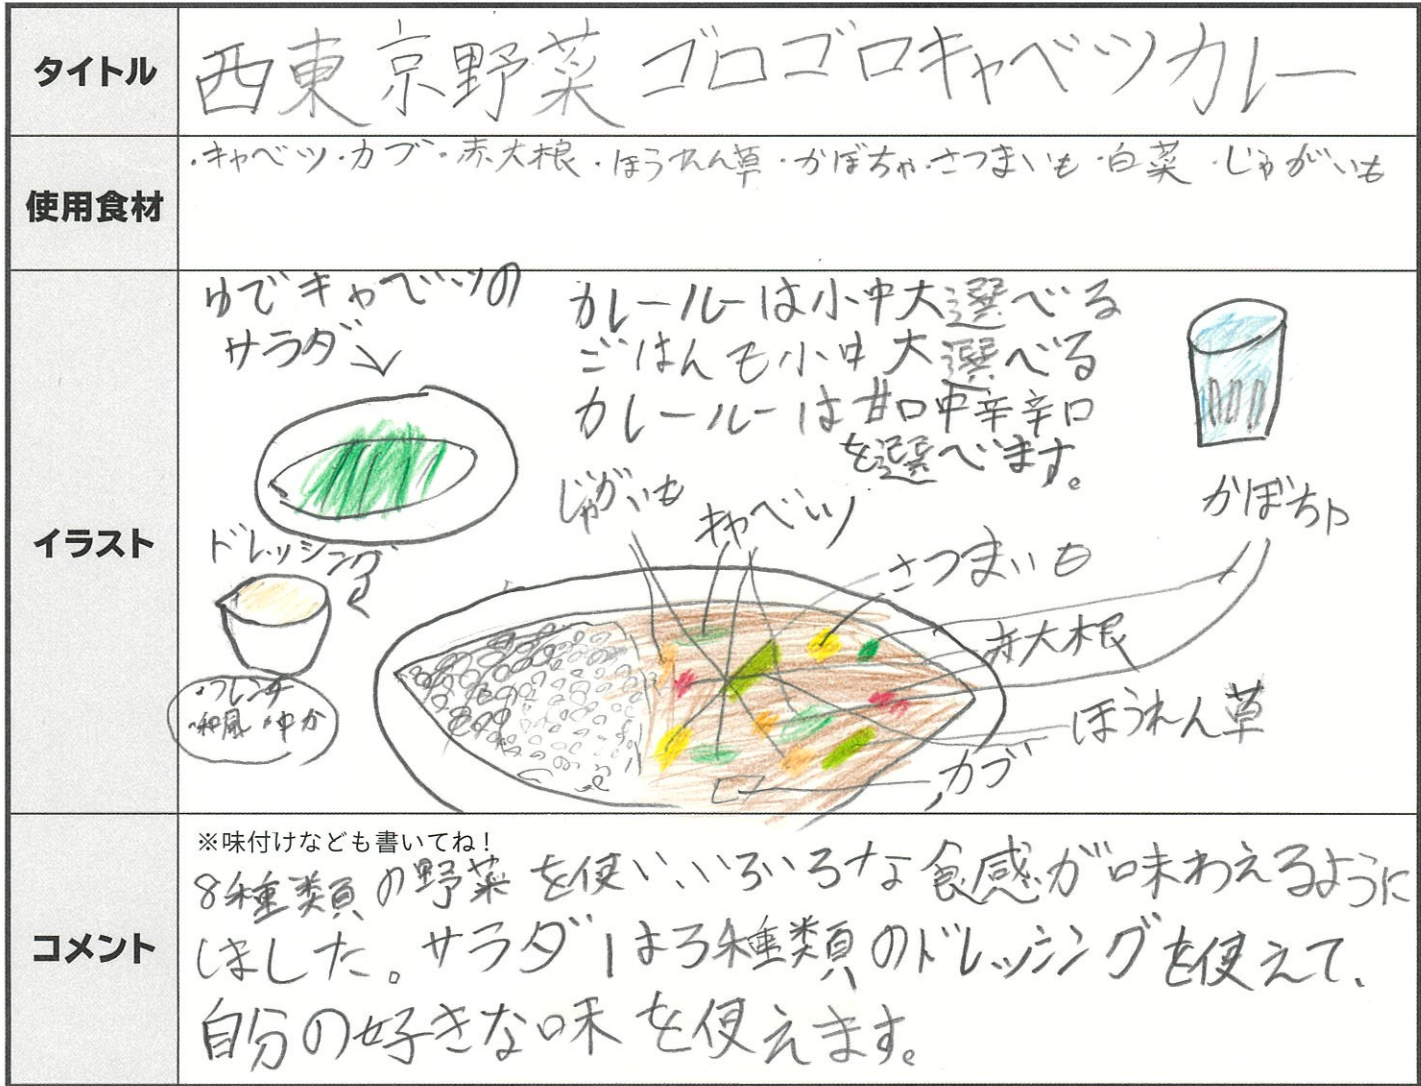 タイトル
西東京野菜 ゴロゴロキャベツカレー
使用食材
・キャベツ・カブ・赤大根・ほうれん草・かぼちゃ・さつまいも・白菜・じゃがいも
イラスト
ゆでキャベツの
サラダ
カレールーは小中大選べる
ごはんも小中大選べる
カレールーは甘口中辛辛口
を選べます。
じゃがいも
キャベツ
かぼちゃ
さつまいも
ドレッシング
赤大根
・フレンチ
・和風・中か
ほうれん草
カブ
コメント
※味付けなども書いてね!
8種類の野菜を使い、いろいろな食感が味わえるように
しました。サラダは3種類のドレッシングを使えて、
自分の好きな味を使えます。